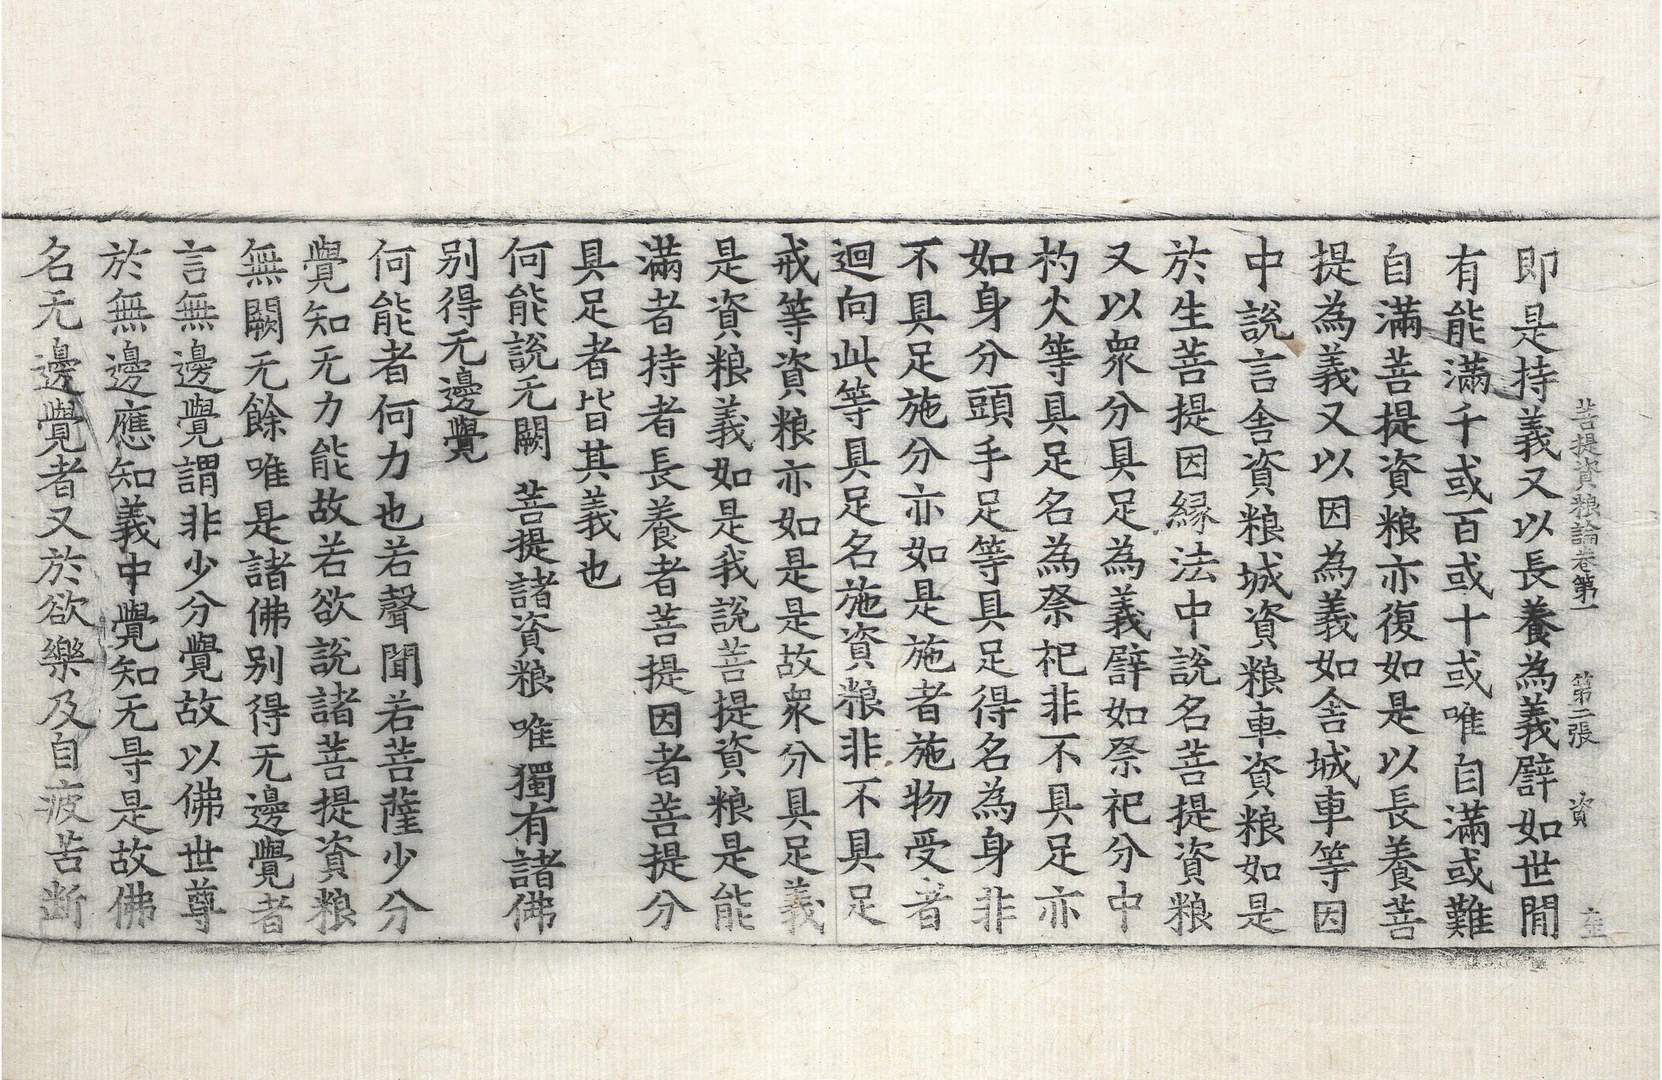 菩提資粮論卷第一 第二張 資
即是持義又以長養為義譬如世閒
有能滿千或百或十或唯自滿或難
自滿菩提資粮亦復如是以長養菩
提為義又以因為義如舍城車等因
中說言舍資粮城資粮車資粮如是
於生菩提因緣法中說名菩提資粮
又以衆分具足為義譬如祭祀分中
杓火等具足名為祭祀非不具足亦
如身分頭手足等具足得名為身非
不具足施分亦如是施者施物受者
迴向此等具足名施資粮非不具足
戒等資粮亦如是是故衆分具足義
是資粮義如是我說菩提資粮是能
滿者持者長養者菩提因者菩提分
具足者皆其義也
何能說无闕 菩提諸資粮 唯獨有諸佛
别得无邊覺
何能者何力也若聲聞若菩薩少分
覺知无力能故若欲說諸菩提資粮
無闕无餘唯是諸佛别得无邊覺者
言無邊覺謂非少分覺故以佛世尊
於無邊應知義中覺知无㝵是故佛
名无邊覺者又於欲樂及自疲苦断